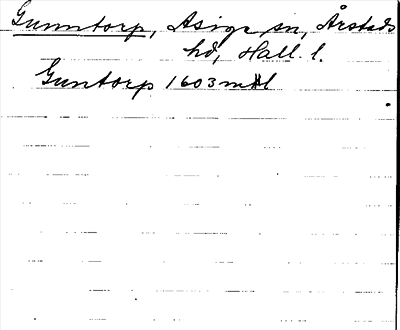 Gunntorp, Asige sn, Årstads
hd, Hall. l.
Guntorp 1603 mtl